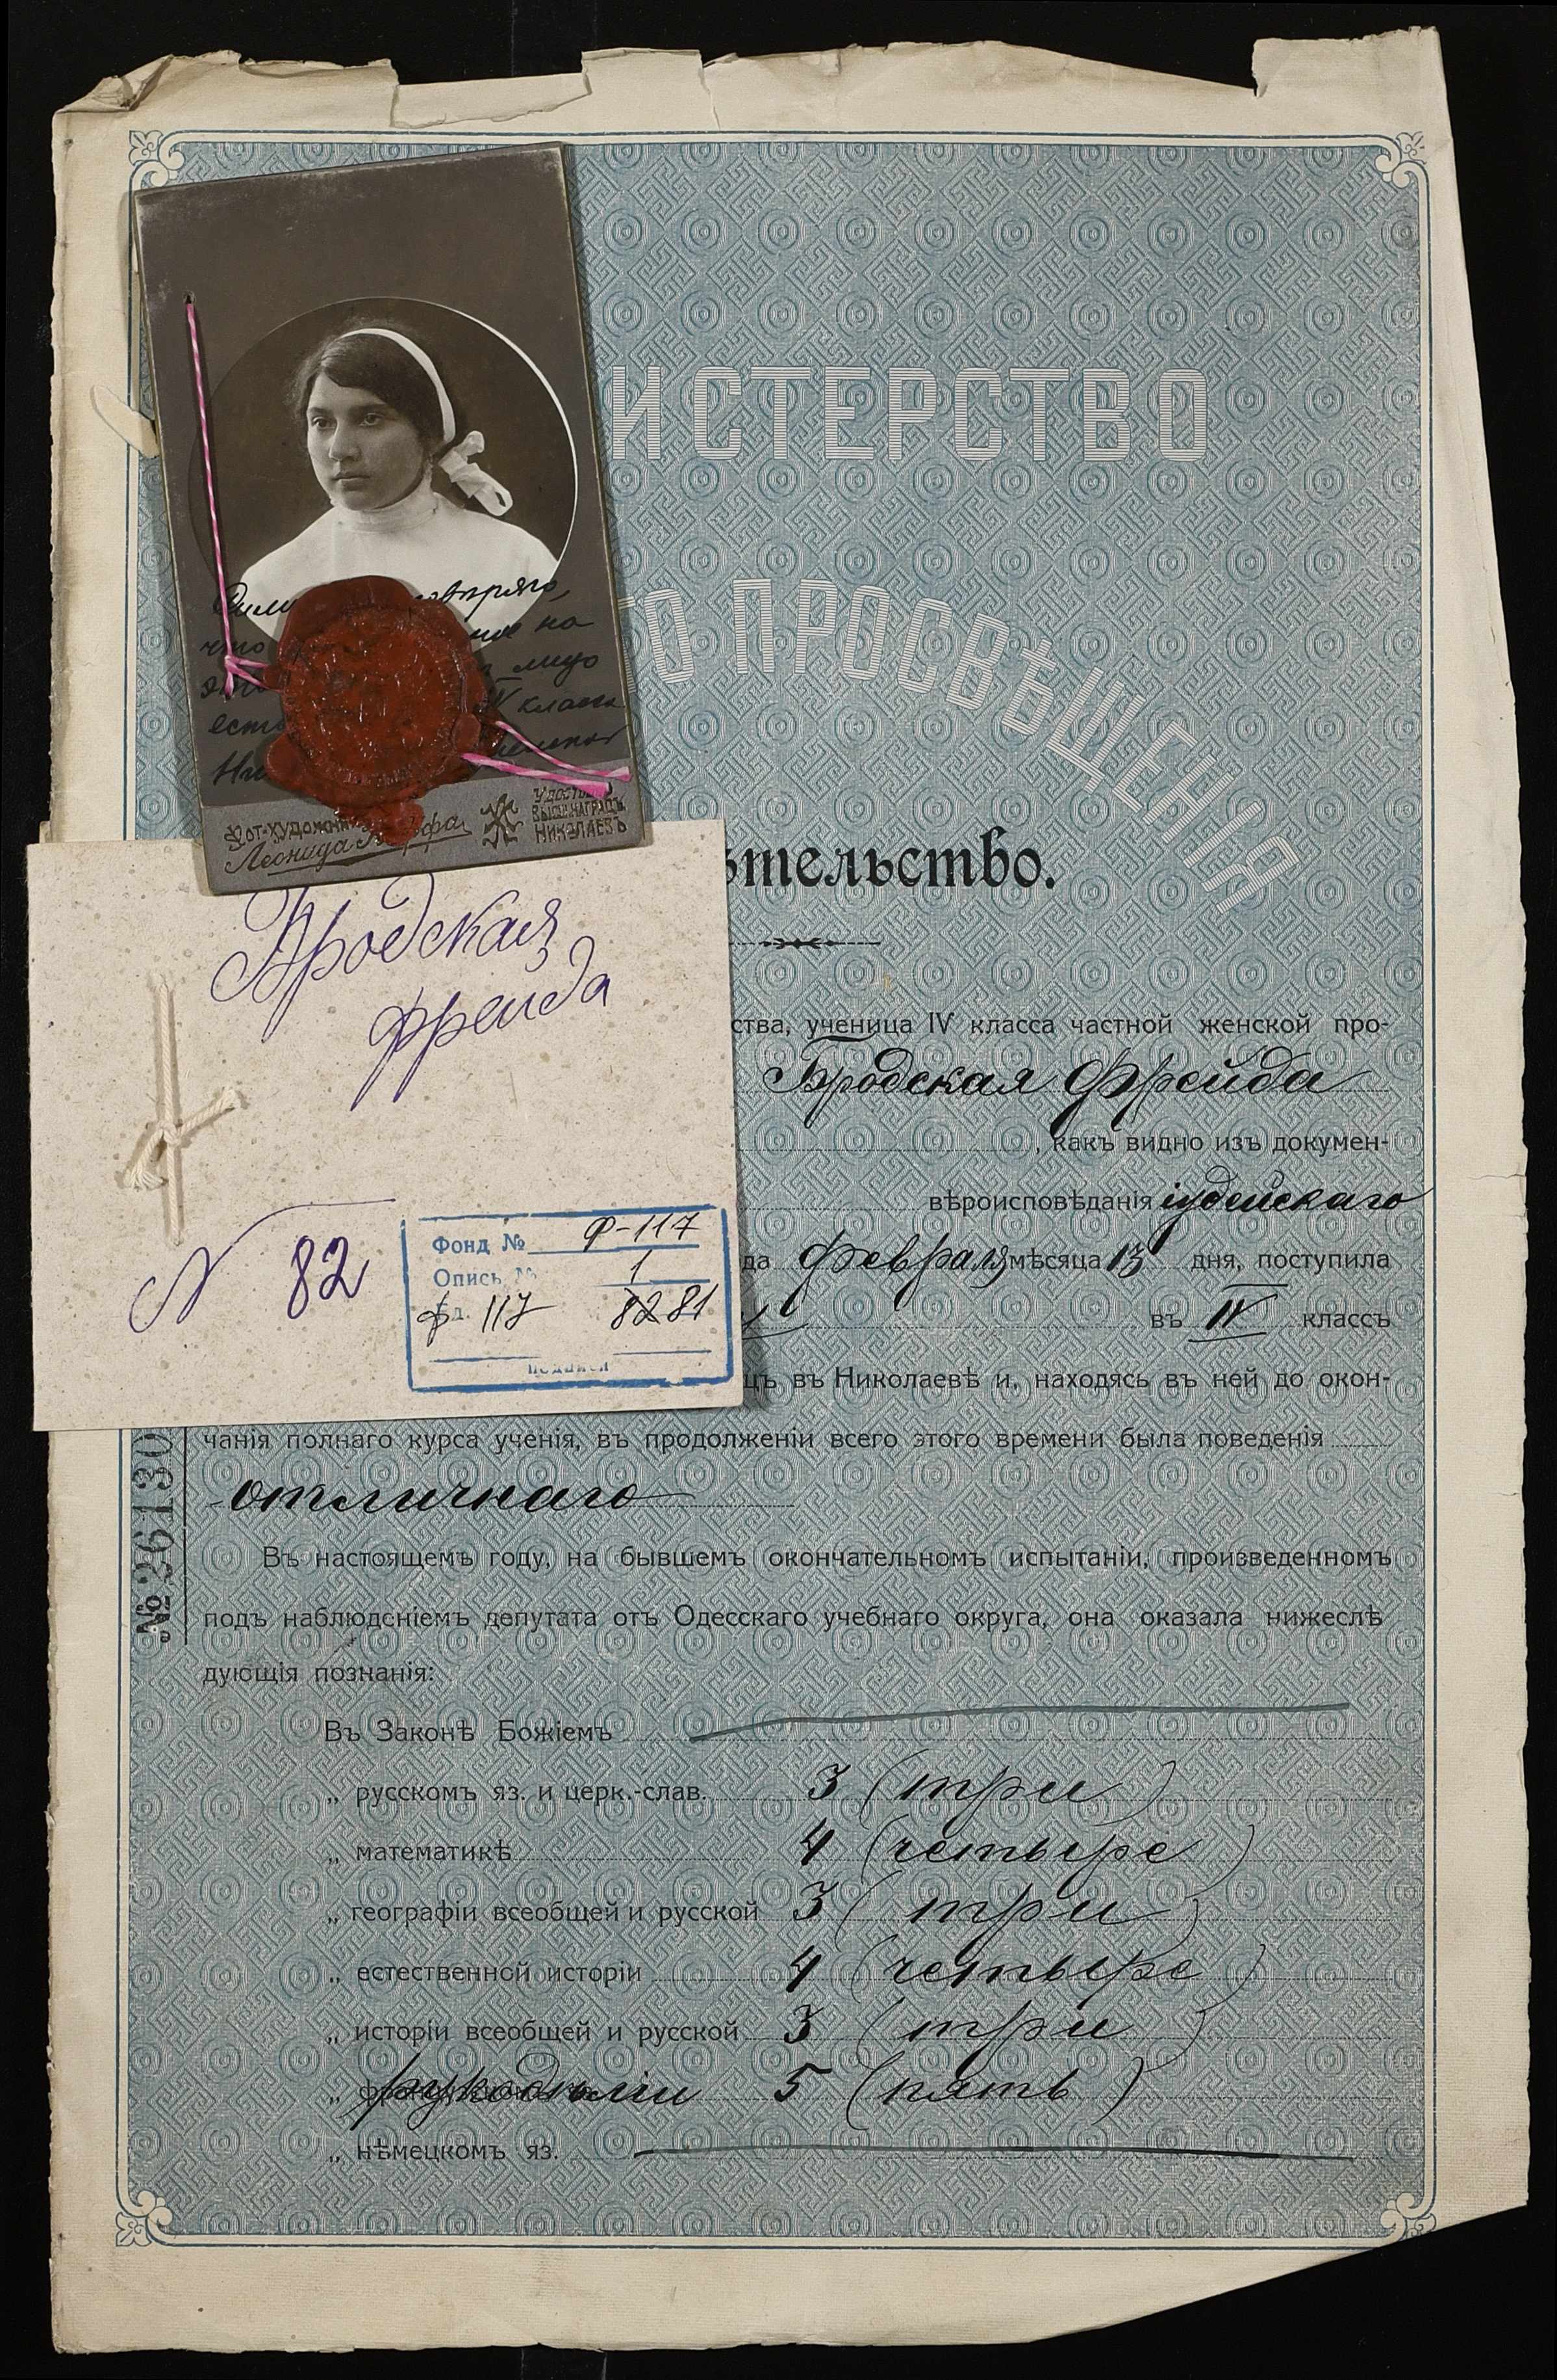 ИСТЕРСТВО
ГО ПРОСВѢЩЕНІЯ
что на
лицо
есть IV класса
ФОТ-ХУДОЖНИ
Леонида
УДОСТО
ВЫСШ. НАГРАДЪ
НИКОЛАЕВЪ
ѣтельство.
Бродская
Фрейда
N 82
Фонд № Ф-117
Опись № 1
ф 117 82 81
ства, ученица IV класса частной женской про-
Бродская Фрейда
, какъ видно изъ докумен-
вѣроисповѣданія іудейскаго
да февраля мѣсяца 13 дня, поступила
въ IV классъ
цъ въ Николаевѣ и, находясь въ ней до окон-
чанія полнаго курса ученія, въ продолженіи всего этого времени была поведенія
отличнаго
№ 26130
Въ настоящемъ году, на бывшемъ окончательномъ испытаніи, произведенномъ
подъ наблюденіемъ депутата отъ Одесскаго учебнаго округа, она оказала нижеслѣ
дующія познанія:
Въ Законѣ Божіемъ
„ русскомъ яз. и церк.-слав. 3 (три)
„ математикѣ 4 (четыре)
„ географіи всеобщей и русской 3 (три)
„ естественной исторіи 4 (четыре)
„ исторіи всеобщей и русской 3 (три)
„ рукодѣліи 5 (пять)
„ нѣмецкомъ яз.